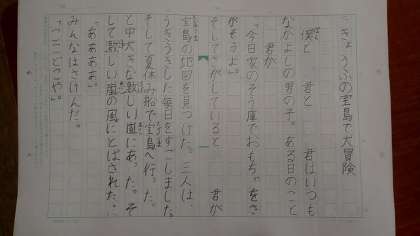 きょうふの宝島で大冒険
僕と 君と 君はいつも
なかよしの男の子。ある日のこと
君が
「今日家のそう庫でおもちゃをさ
がそうよ。」
そしてさがしていると 君が
宝島の地図を見つけた。三人は、
うきうきした毎日をすごしました。
そして夏休み船で宝島へ行った。
と中大きな激しい嵐にあった。そ
して激しい嵐の風にとばされた…
「ああああ。」
みんなはさけんだ。
「ここどこや。」